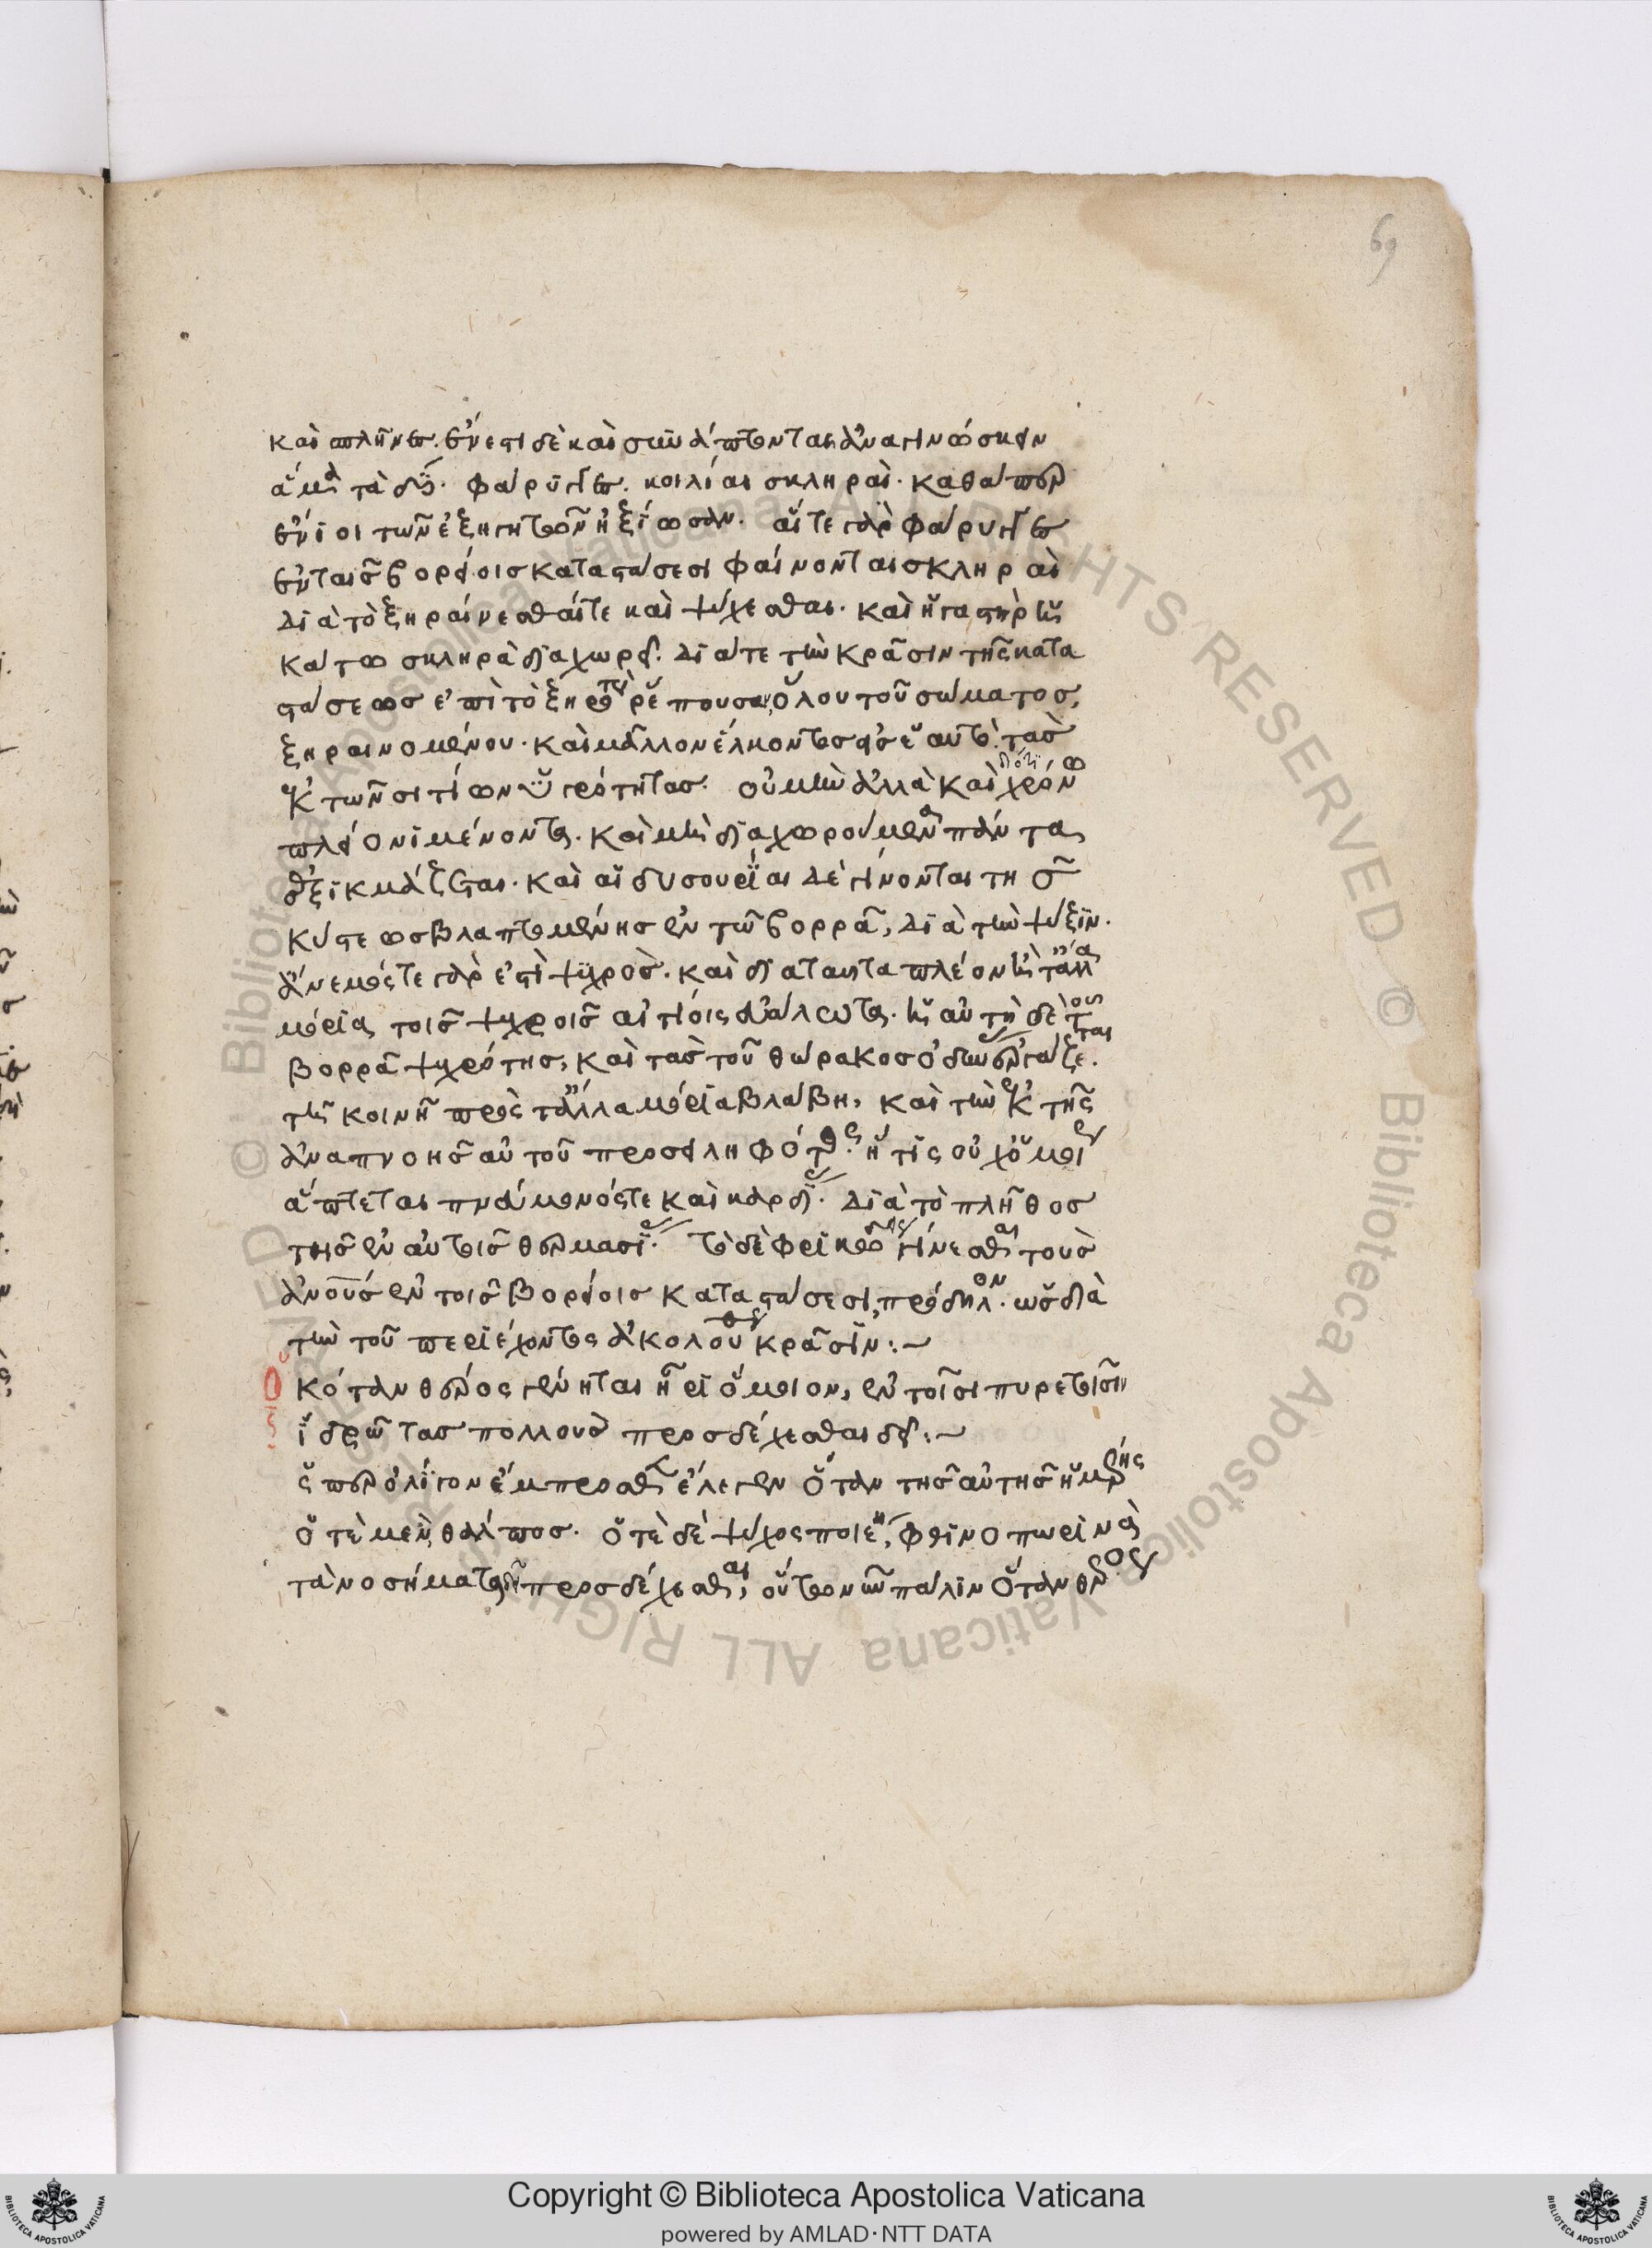 69
καὶ πλῆντο. ἔνεστι δὲ καὶ συνάπτοντας ἀναγινώσκειν
ἅμα τὰ δύο. φάρυγγες. κοιλίαι σκληραί. καθάπερ
ἔνιοι τῶν ἐξηγητῶν ἠξίωσαν. αἵτε γὰρ φάρυγγες
ἐν ταῖς βορείοις καταστάσεσι φαίνονται σκληραὶ
διὰ τὸ ξηραίνεσθαί τε καὶ ψύχεσθαι. καὶ ἡ γαστὴρ ἡ
κάτω σκληρὰ διαχωρεῖ. διά τε τὴν κρᾶσιν τῆς κατα
στάσεως ἐπὶ τὸ ξηρότερον ῥέπουσαν, ὅλου τοῦ σώματος,
ξηραινομένου. καὶ μᾶλλον ἕλκοντος εἰς ἑαυτὸ τὰς
ἐκ τῶν σιτίων ὑγρότητας. οὐ μὴν ἀλλὰ καὶ χρόνω
πλείονι μένοντα. καὶ μὴ διαχωρούμενα πάντα
ἐξικμάζεται. καὶ αἱ δυσουρίαι δὲ γίνονται τῆς
κύστεως βλαπτομένης ἐν τῶ βορρᾶ, διὰ τὴν ψύξιν.
ἄνεμός τε γάρ ἐστι ψυχρός. καὶ διὰ ταῦτα πλέον ἢ τἄλλα
μόρια τοῖς ψυχροῖς αἰτίοις εὐάλωτα. ἡ αὐτὴ δὲ τοῦ
βορρᾶ ψυχρότης, καὶ τὰς τοῦ θώρακος ὀδύνας ἐργάζεται.
τῆ κοινῆ πρὸς τἄλλα μόρια βλάβη, καὶ τὴν ἐκ τῆς
ἀναπνοῆς αὐτοῦ προσειληφότος. ἥτις οὐχ ὁμοίως
ἅπτεται πνεύμονός τε καὶ καρδίας. διὰ τὸ πλῆθος
τῆς ἐν αὐτοῖς θερμασίας. τὸ δὲ φρικώδεις γίνεσθαι τοὺς
ἀνους ἐν τοῖς βορείοις καταστάσεσι, πρόδηλον. ὡς διὰ
τὴν τοῦ περιέχοντος ἀκολουθεῖ κρᾶσιν:~
Ὁκόταν θέρος γένηται ἦρι ὅμοιον, ἐν τοῖσι πυρετοῖσιν
ἱδρῶτας πολλοὺς προσδέχεσθαι δεῖ:~
ὥσπερ ὀλίγον ἔμπροσθεν ἔλεγεν ὅταν τῆς αὐτῆς ἡμέρης
ὁτὲ μὲν, θάλπος. ὁτὲ δὲ ψῦχος ποιέη, φθινοπωρινὰ
τὰ νοσήματα δεῖ προσδέχεσθαι, οὕτω νῦν πάλιν ὅταν θέρος